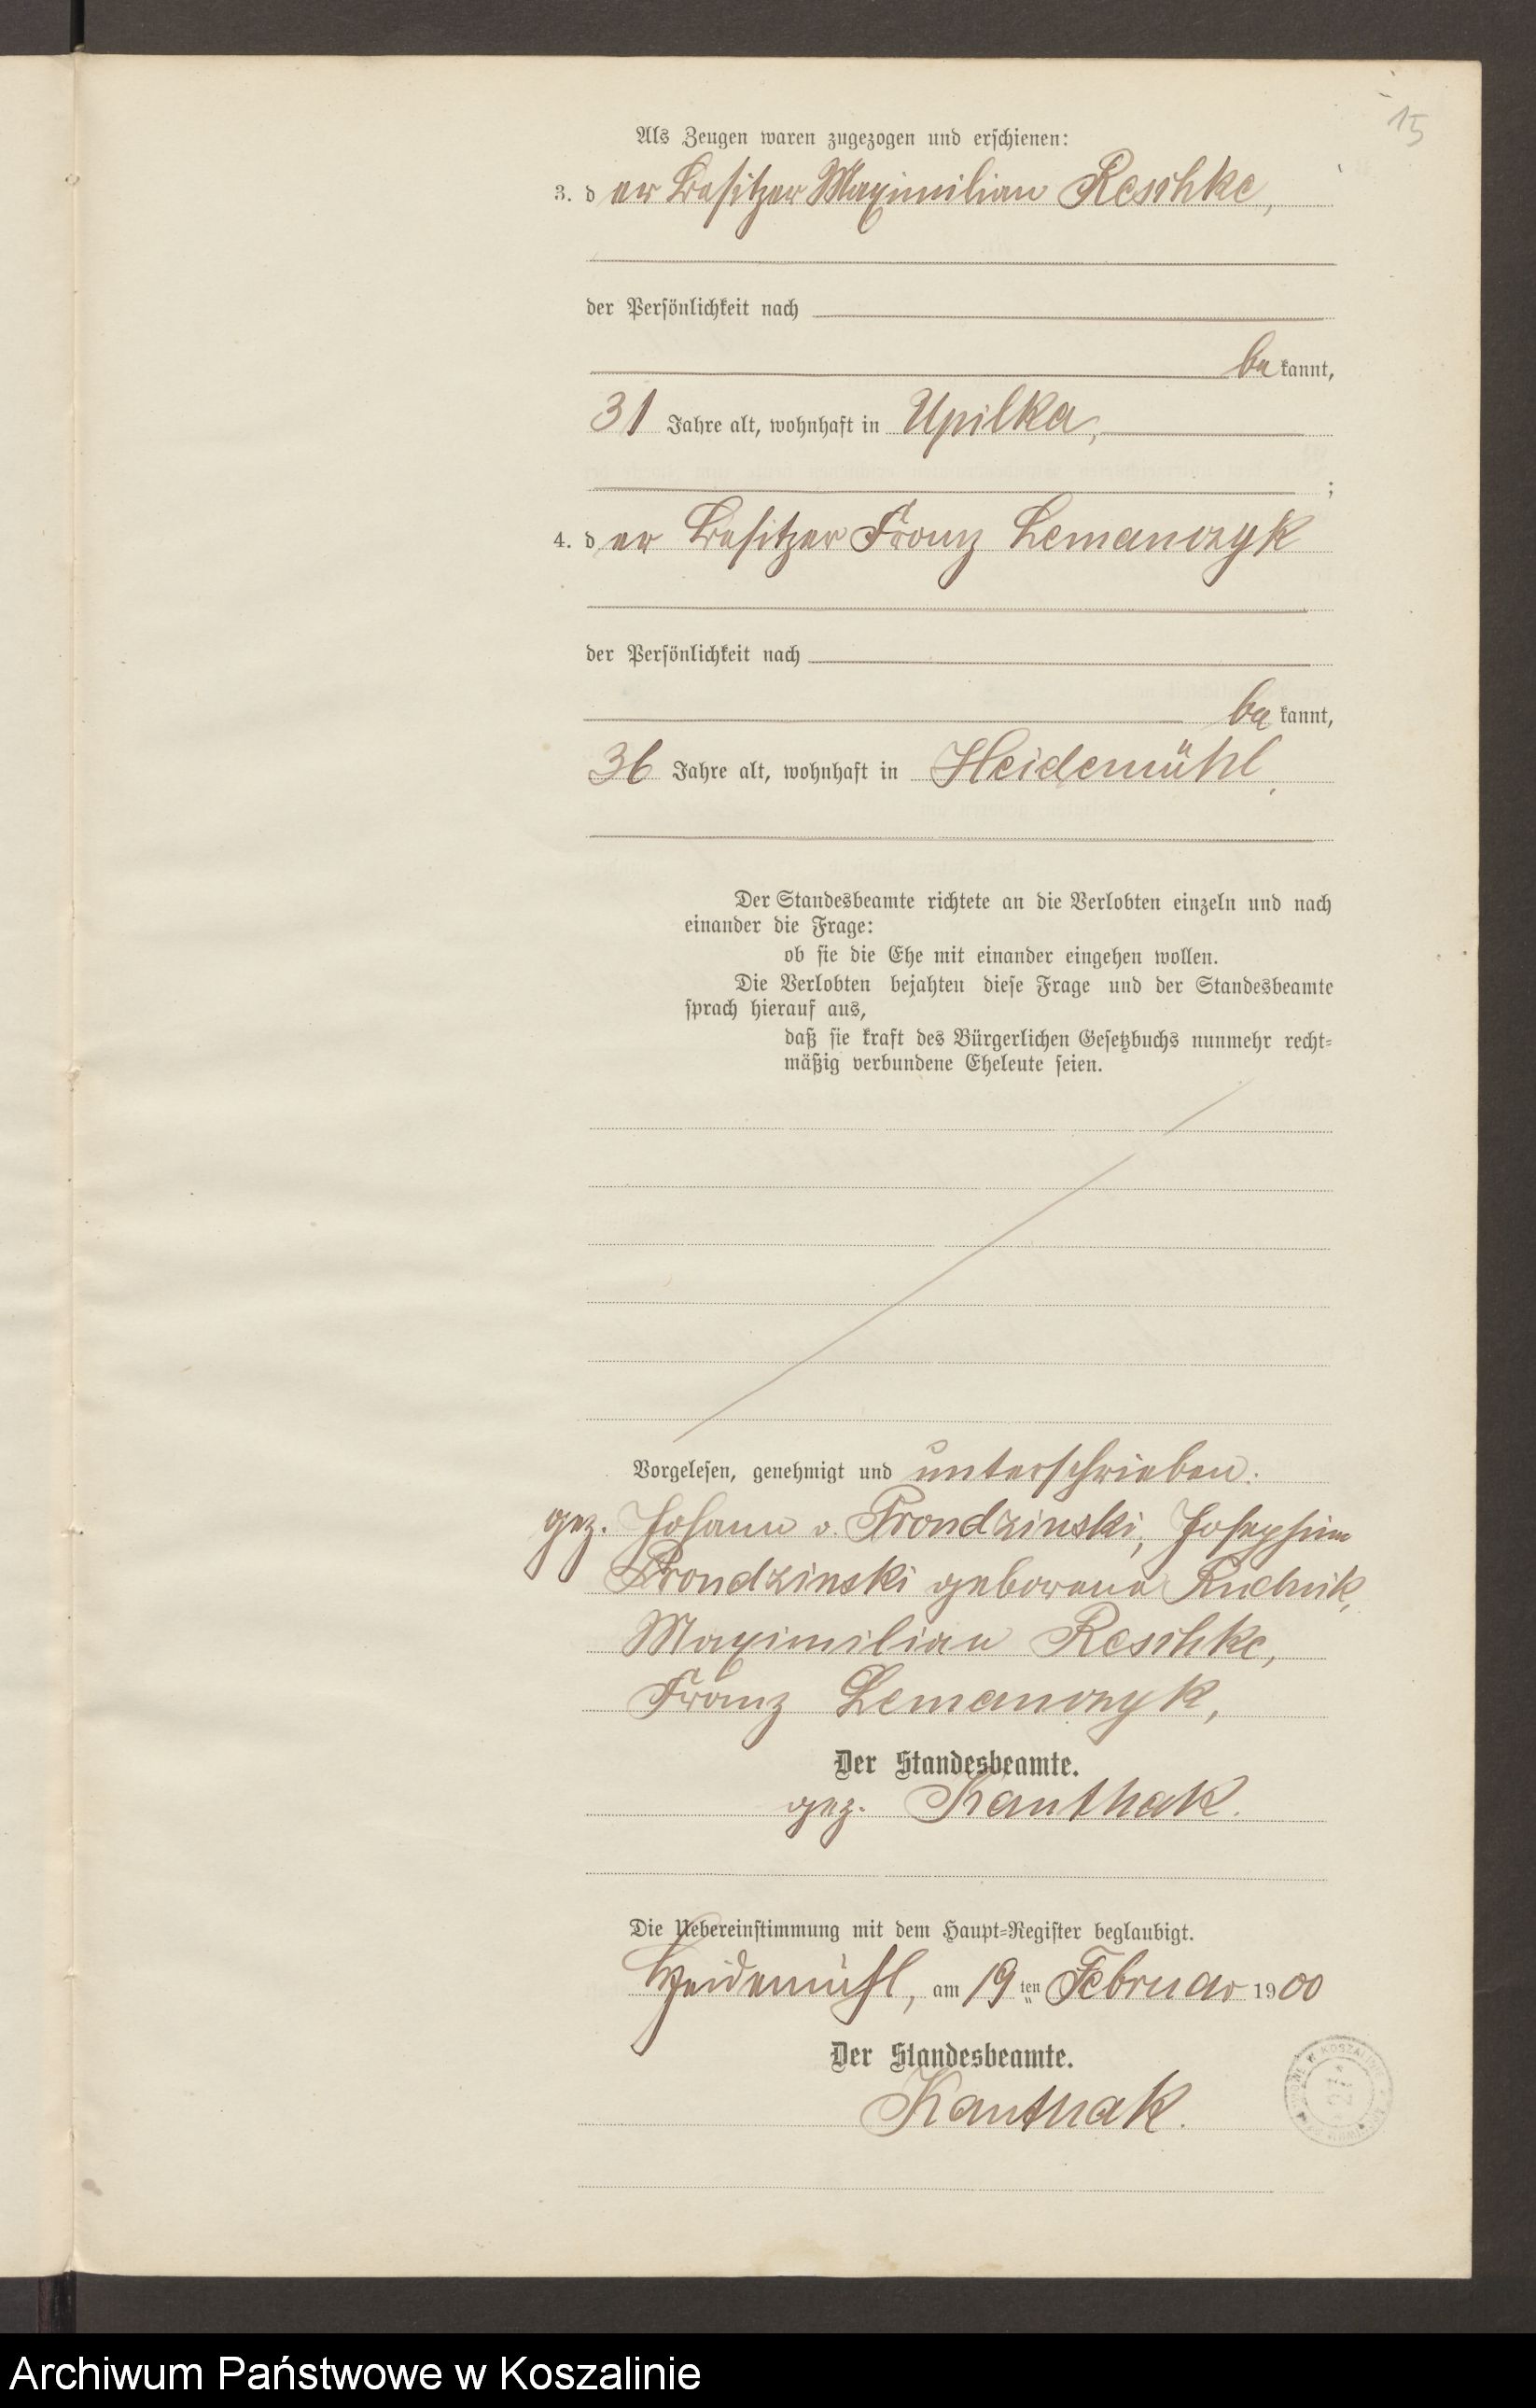 15
Als Zeugen waren zugezogen und erschienen:
3. der Besitzer Maximilian Reschke,
der Persönlichkeit nach
bekannt,
31 Jahre alt, wohnhaft in Upilka,
;
4. der Besitzer Franz Lemanczyk
der Persönlichkeit nach
bekannt,
36 Jahre alt, wohnhaft in Heidemühl,
Der Standesbeamte richtete an die Verlobten einzeln und nach
einander die Frage:
ob sie die Ehe mit einander eingehen wollen.
Die Verlobten bejahten diese Frage und der Standesbeamte
sprach hierauf aus,
daß sie kraft des Bürgerlichen Gesetzbuchs nunmehr recht-
mäßig verbundene Eheleute seien.
Vorgelesen, genehmigt und unterschrieben.
gez. Johann v. Prondzinski, Josephine
Prondzinski geborene Rudnik,
Maximilian Reschke,
Franz Lemanczyk,
Der Standesbeamte.
gez. Kanthak.
Die Uebereinstimmung mit dem Haupt-Register beglaubigt.
Heidemühl, am 19ten Februar 1900
Der Standesbeamte.
Kanthak.
Archiwum Państwowe w Koszalinie